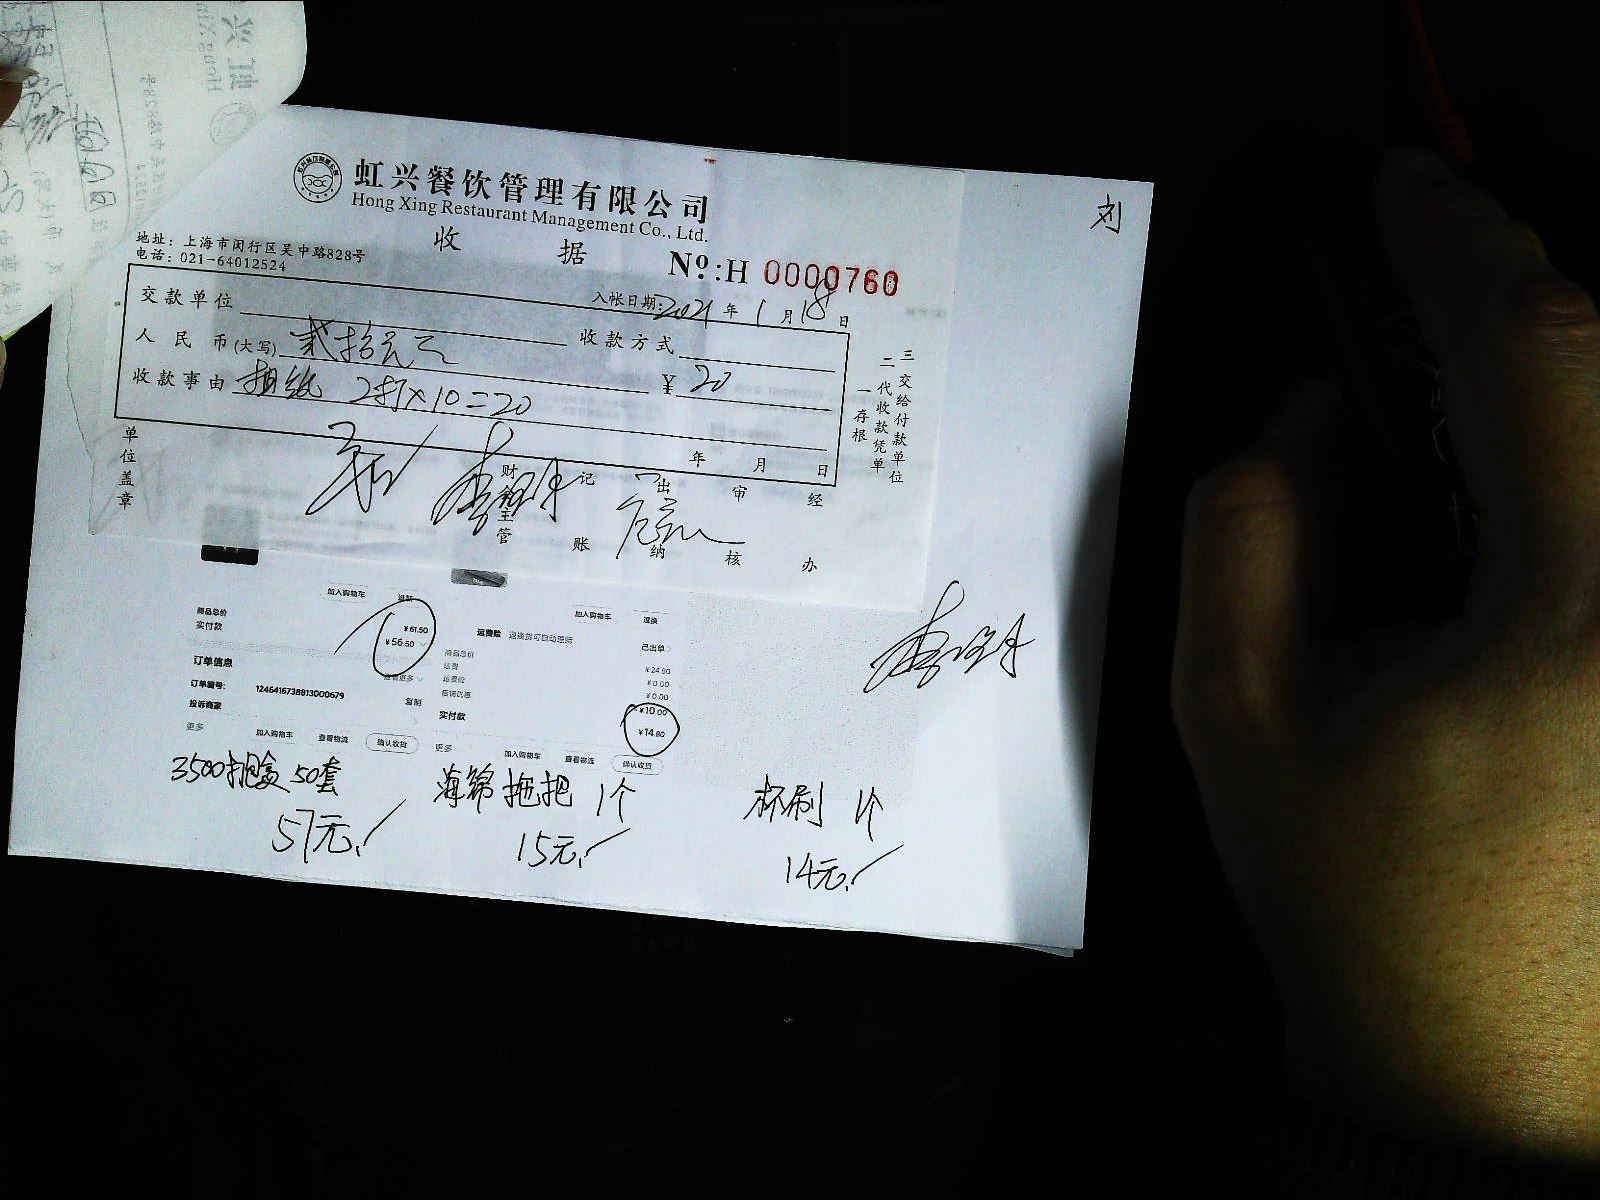 虹兴餐饮管理有限公司
Hong Xing Restaurant Management Co., Ltd.
刘
收 据
地址：上海市闵行区吴中路828号
电话：021-64012524
Nº:H 0000760
入帐日期：2021年1月18日
交款单位
收款方式
人民币(大写) 贰拾元
¥ 20
收款事由 2打×10=20
年 月 日
一存根
二代收款凭单
三交给付款单位
单位盖章
财务主管
记账
出纳
审核
经办
加入购物车 退款
商品总价 ¥61.50
实付款 ¥56.50
查看更多
订单信息
订单编号: 1246416738813000679 复制
投诉商家
更多 加入购物车 查看物流 确认收货
加入购物车 退换
运费险 退换货可自动理赔 已出单
商品总价 ¥24.80
运费 ¥0.00
运费险 ¥0.00
¥10.00
实付款 ¥14.80
更多 加入购物车 查看物流 确认收货
50套
57元
海绵拖把 1个
15元
杯刷 1个
14元